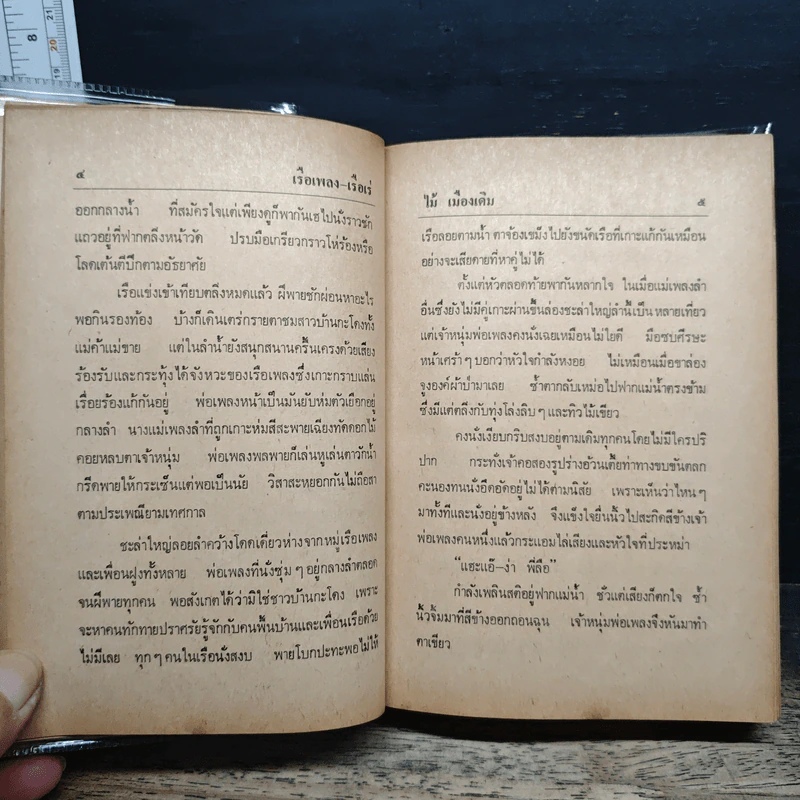 ๔ เรือเพลง–เรือเร่
ออกกลางน้ำ ที่สมัครใจแต่เพียงดูก็พากันเฮไปนั่งราวชัก
แถวอยู่ที่ฟากตลิ่งหน้าวัด ปรบมือเกรียวกราวโห่ร้องหรือ
โลดเต้นตีปีกตามอัธยาศัย
เรือแข่งเข้าเทียบตลิ่งหมดแล้ว ฝีพายชักผ่อนหาอะไร
พอกินรองท้อง บ้างก็เดินเตร่กรายตาชมสาวบ้านกะโดงทั้ง
แม่ค้าแม่ขาย แต่ในลำน้ำยังสนุกสนานครื้นเครงด้วยเสียง
ร้องรับและกระทุ้งได้จังหวะของเรือเพลงซึ่งเกาะกราบแล่น
เรื่อยร้องแก้กันอยู่ พ่อเพลงหน้าเป็นมันยับห่มตัวเยือกอยู่
กลางลำ นางแม่เพลงลำที่ถูกเกาะห่มสีสะพายเฉียงทัดดอกไม้
คอยหลบตาเจ้าหนุ่ม พ่อเพลงพลพายก็เล่นหูเล่นตาวักน้ำ
กรีดพายให้กระเซ็นแต่พอเป็นนัย วิสาสะหยอกกันไม่ถือสา
ตามประเพณียามเทศกาล
ชะล่าใหญ่ลอยลำคว้างโดดเดี่ยวห่างจากหมู่เรือเพลง
และเพื่อนฝูงทั้งหลาย พ่อเพลงที่นั่งซุ่มๆอยู่กลางลำตลอด
จนฝีพายทุกคน พอสังเกตได้ว่ามิใช่ชาวบ้านกะโดง เพราะ
จะหาคนทักทายปราศรัยรู้จักกับคนพื้นบ้านและเพื่อนเรือด้วย
ไม่มีเลย ทุกๆคนในเรือนั่งสงบ พายโบกปะทะพอไม่ให้
ไม้ เมืองเดิม ๕
เรือลอยตามน้ำ ตาจ้องเขม็งไปยังขนัดเรือที่เกาะแก้กันเหมือน
อย่างจะเสียดายที่หาคู่ไม่ได้
ตั้งแต่หัวตลอดท้ายพากันหลากใจ ในเมื่อแม่เพลงลำ
อื่นซึ่งยังไม่มีคู่เกาะผ่านขึ้นล่องชะล่าใหญ่ลำนี้เป็นหลายเที่ยว
แต่เจ้าหนุ่มพ่อเพลงคงนั่งเฉยเหมือนไม่ไยดี มือซบศีรษะ
หน้าเศร้าๆบอกว่าหัวใจกำลังหงอย ไม่เหมือนเมื่อขาล่อง
จูงองค์ผ้าป่ามาเลย ซ้ำตากลับเหม่อไปฟากแม่น้ำตรงข้าม
ซึ่งมีแต่ตลิ่งกับทุ่งโล่งลิบๆและทิวไม้เขียว
คงนั่งเงียบกริบสงบอยู่ตามเดิมทุกคนโดยไม่มีใครปริ
ปาก กระทั่งเจ้าคอสองรูปร่างอ้วนเตี้ยท่าทางขบขันตลก
คะนองทนนั่งอึดอัดอยู่ไม่ได้ตามนิสัย เพราะเห็นว่าไหนๆ
มาทั้งทีและนั่งอยู่ข้างหลัง จึงแข็งใจยื่นนิ้วไปสะกิดสีข้างเจ้า
พ่อเพลงคนหนึ่งแล้วกระแอมไล่เสียงและหัวใจที่ประหม่า
“แฮะแอ๊–ง่า พี่ลือ”
กำลังเพลินสติอยู่ฟากแม่น้ำ ชั่วแต่เสียงก็ตกใจ ซ้ำ
นิ้วจิ้มมาที่สีข้างออกถอนฉุน เจ้าหนุ่มพ่อเพลงจึงหันมาทำ
ตาเขียว